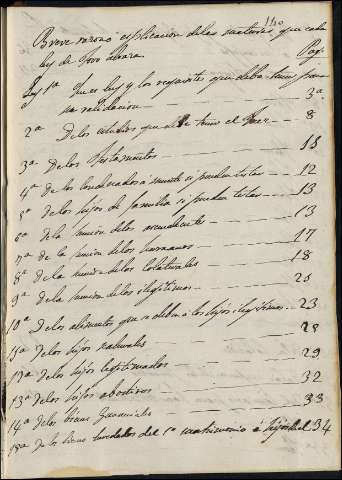 Breve razon ó esplicacion de las materias, que cada
ley de Toro abraza. Pag.
Ley 1ª Que es ley y los requisitos que deba tener para
su validacion 3ª
2ª De los estudios que debe tener el Juez 8
3ª De los Testamentos 13
4ª De los condenados á muerte si pueden testar 12
5ª De los hijos de familia si pueden testar 13
6ª De la sucesion de los ascendientes 13
7ª de la sucesion de los hermanos 17
8ª De la sucesion de los colaterales 18
9ª De la sucesion de los ilegitimos 20
10ª De los alimentos que se deben á los hijos ilegitimos 23
11ª De los hijos naturales 28
12ª De los hijos legitimados 29
13ª De los hijos abortivos 32
14ª De los bienes Gananciales 33
15ª de los bienes heredados del 1º matrimonio á hijos del 34